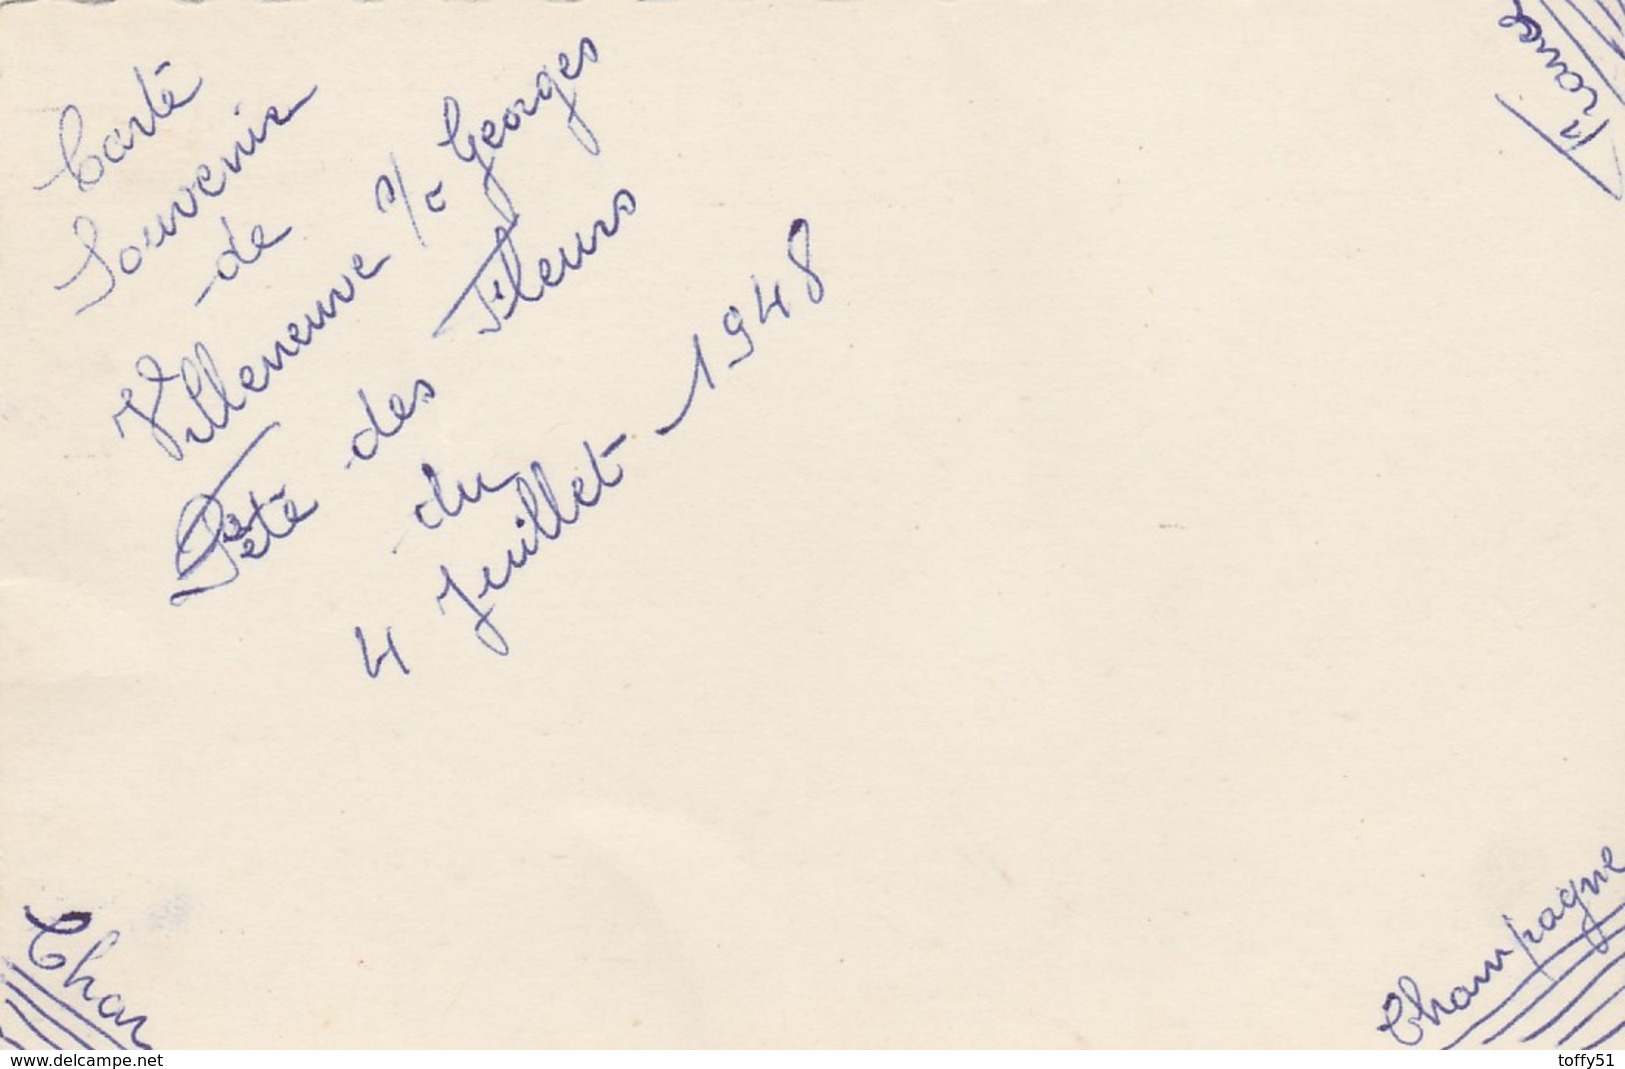 Carte
Souvenir
de
Villeneuve s/c Georges
Fête des Fleurs
du
4 Juillet 1948
France
Char
Champagne
www.delcampe.net
toffy51